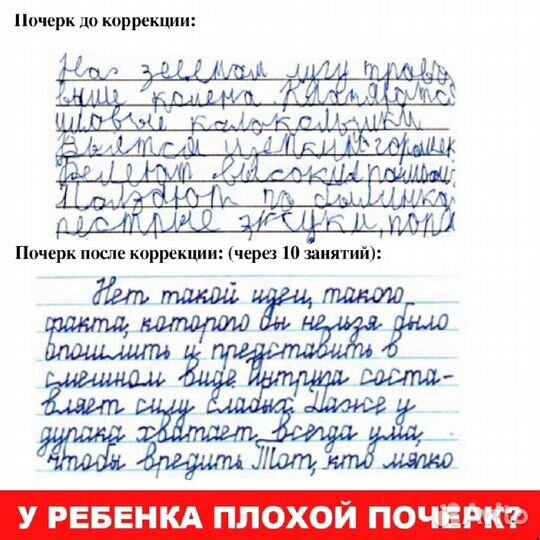 Почерк до коррекции:
На зеленом лугу трова
выше колена.
колокольчики
Вьется цепкий горошек
Белеют высокие ромашки
Ползают по былинка
пестрые жуки, пора
Почерк после коррекции: (через 10 занятий):
Нет такой идеи, такого
факта, которого бы нельзя было
опошлить и представить в
смешном виде. Интрига соста-
вляет силу слабых. Даже у
дурака хватает всегда ума,
чтобы вредить. Тот, кто мягко
У РЕБЕНКА ПЛОХОЙ ПОЧЕРК?
Avito